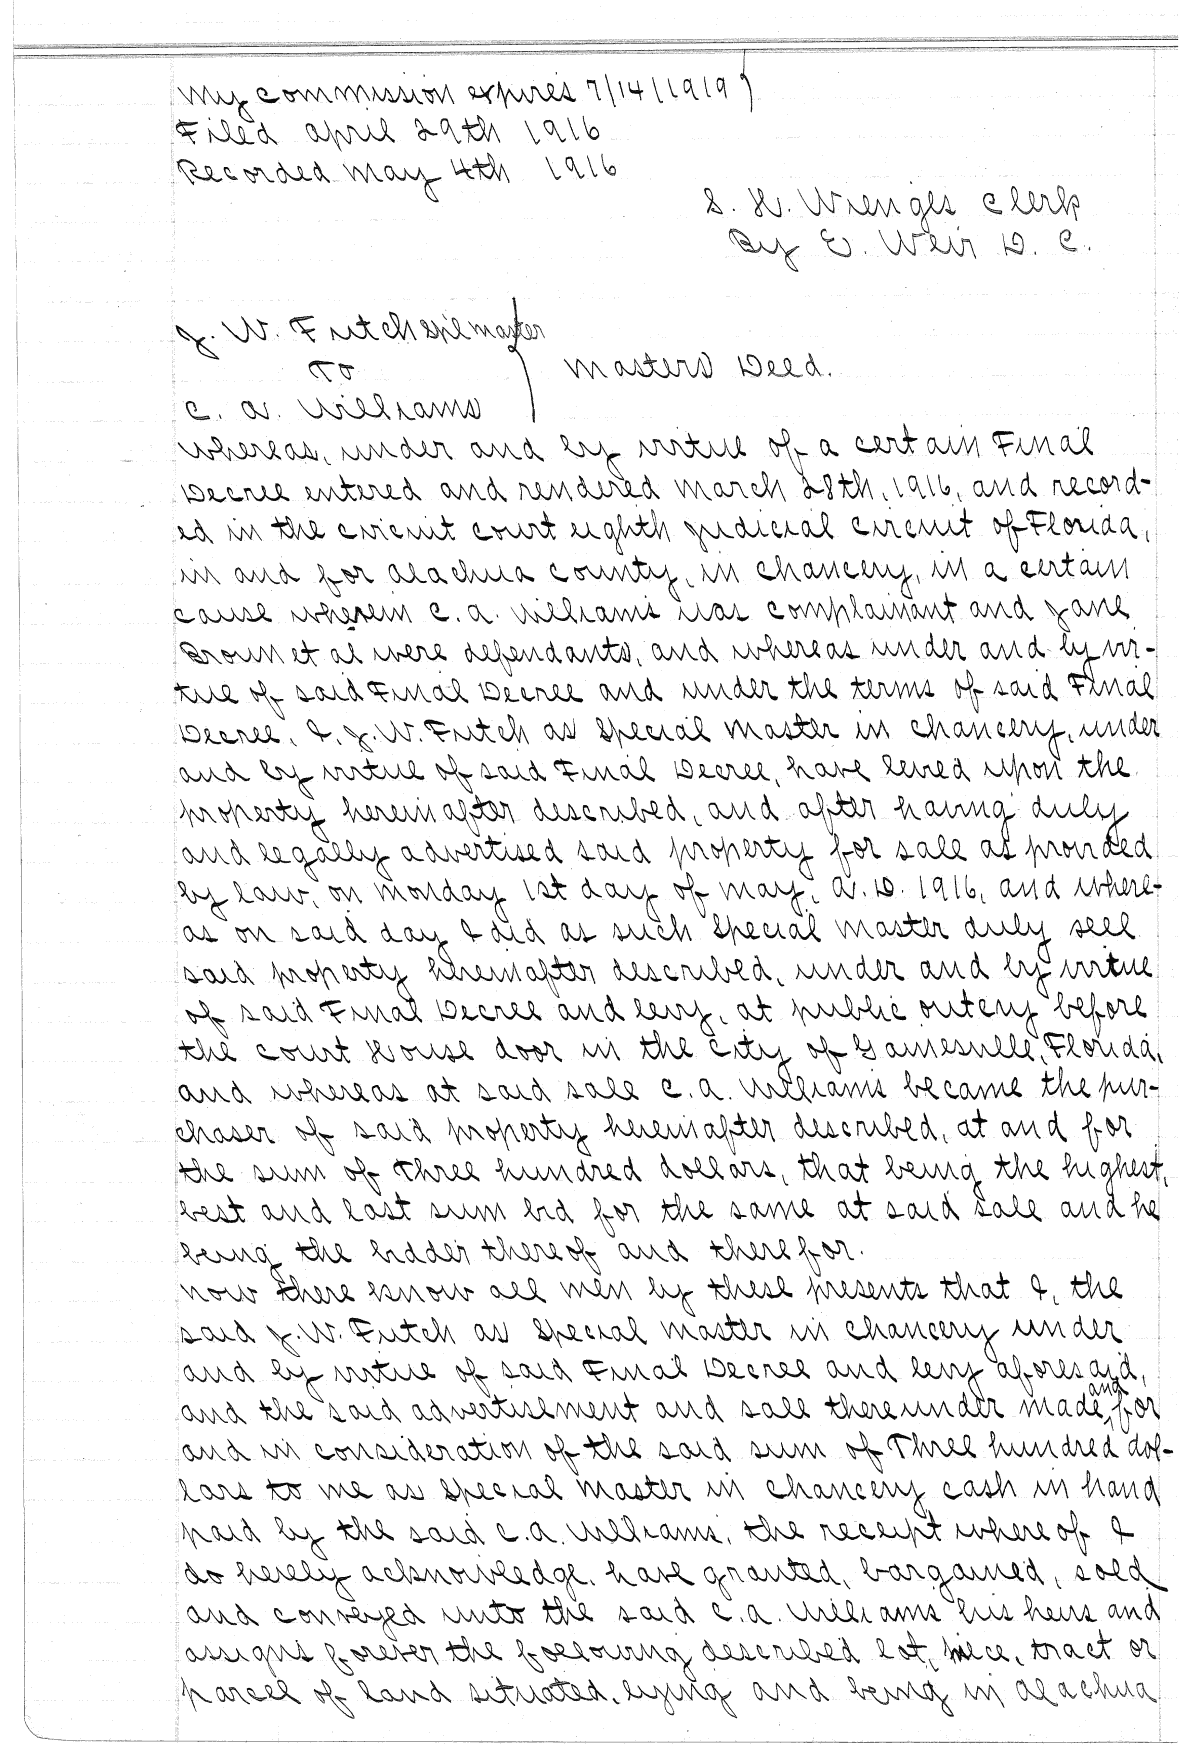 My commission expires 7/14/1919)
Filed april 29th 1916
Recorded May 4th 1916
S. H. Wienges Clerk
By E. Weir D. C.
J. W. Futch Spl master
To
Masters Deed.
C. A. Williams
Whereas, under and by virtue of a certain Final
Decree entered and rendered March 28th, 1916, and record-
ed in the circuit court eighth judicial circuit of Florida,
in and for Alachua County, in chancery, in a certain
cause wherein C. A. Williams was complainant and Jane
Brown et al were defendants, and whereas under and by vir-
tue of said Final Decree and under the terms of said Final
Decree, I, J. W. Futch as Special Master in Chancery, under
and by virtue of said Final Decree, have levied upon the
property hereinafter described, and after having duly
and legally advertised said property for sale as provided
by law, on Monday 1st day of May, A. D. 1916, and where-
as on said day I did as such Special Master duly sell
said property hereinafter described, under and by virtue
of said Final Decree and levy, at public outcry before
the Court House door in the City of Gainesville, Florida,
and whereas at said sale C. A. Williams became the pur-
chaser of said property hereinafter described, at and for
the sum of Three hundred dollars, that being the highest,
best and last sum bid for the same at said sale and he
being the bidder thereof and therefor.
Now there know all men by these presents that I, the
said J. W. Futch as Special Master in Chancery under
and by virtue of said Final Decree and levy aforesaid,
and the said advertisement and sale thereunder made, and for
and in consideration of the said sum of Three hundred dol-
lars to me as Special Master in Chancery cash in hand
paid by the said C. A. Williams, the receipt whereof I
do hereby acknowledge, have granted, bargained, sold
and conveyed unto the said C. A. Williams his heirs and
assigns forever the following described lot, piece, tract or
parcel of land situated, lying and being in Alachua